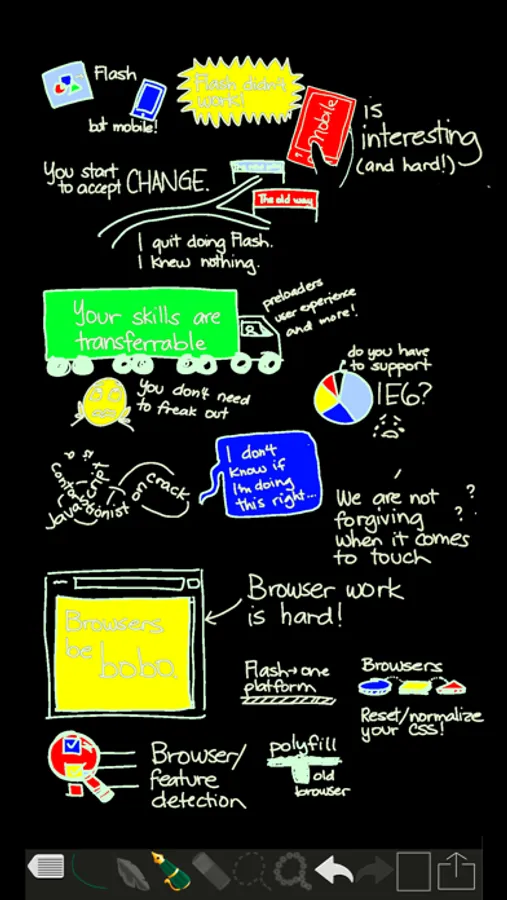 Flash
but mobile!
Flash didn't
work!
Mobile
is
interesting
(and hard!)
You start
to accept CHANGE.
The old way
I quit doing Flash.
I knew nothing.
Your skills are
transferrable
preloaders
user experience
and more!
You don't need
to freak out
do you have
to support
IE6?
JavaScript is a
contortionist
on crack
I don't
know if
I'm doing
this right...
We are not
forgiving
when it comes
to touch
? ? ?
Browsers
be boba
Browser work
is hard!
Flash→one
platform
Browsers
Reset/normalize
your CSS!
Browser/
feature
detection
polyfill
old
browser